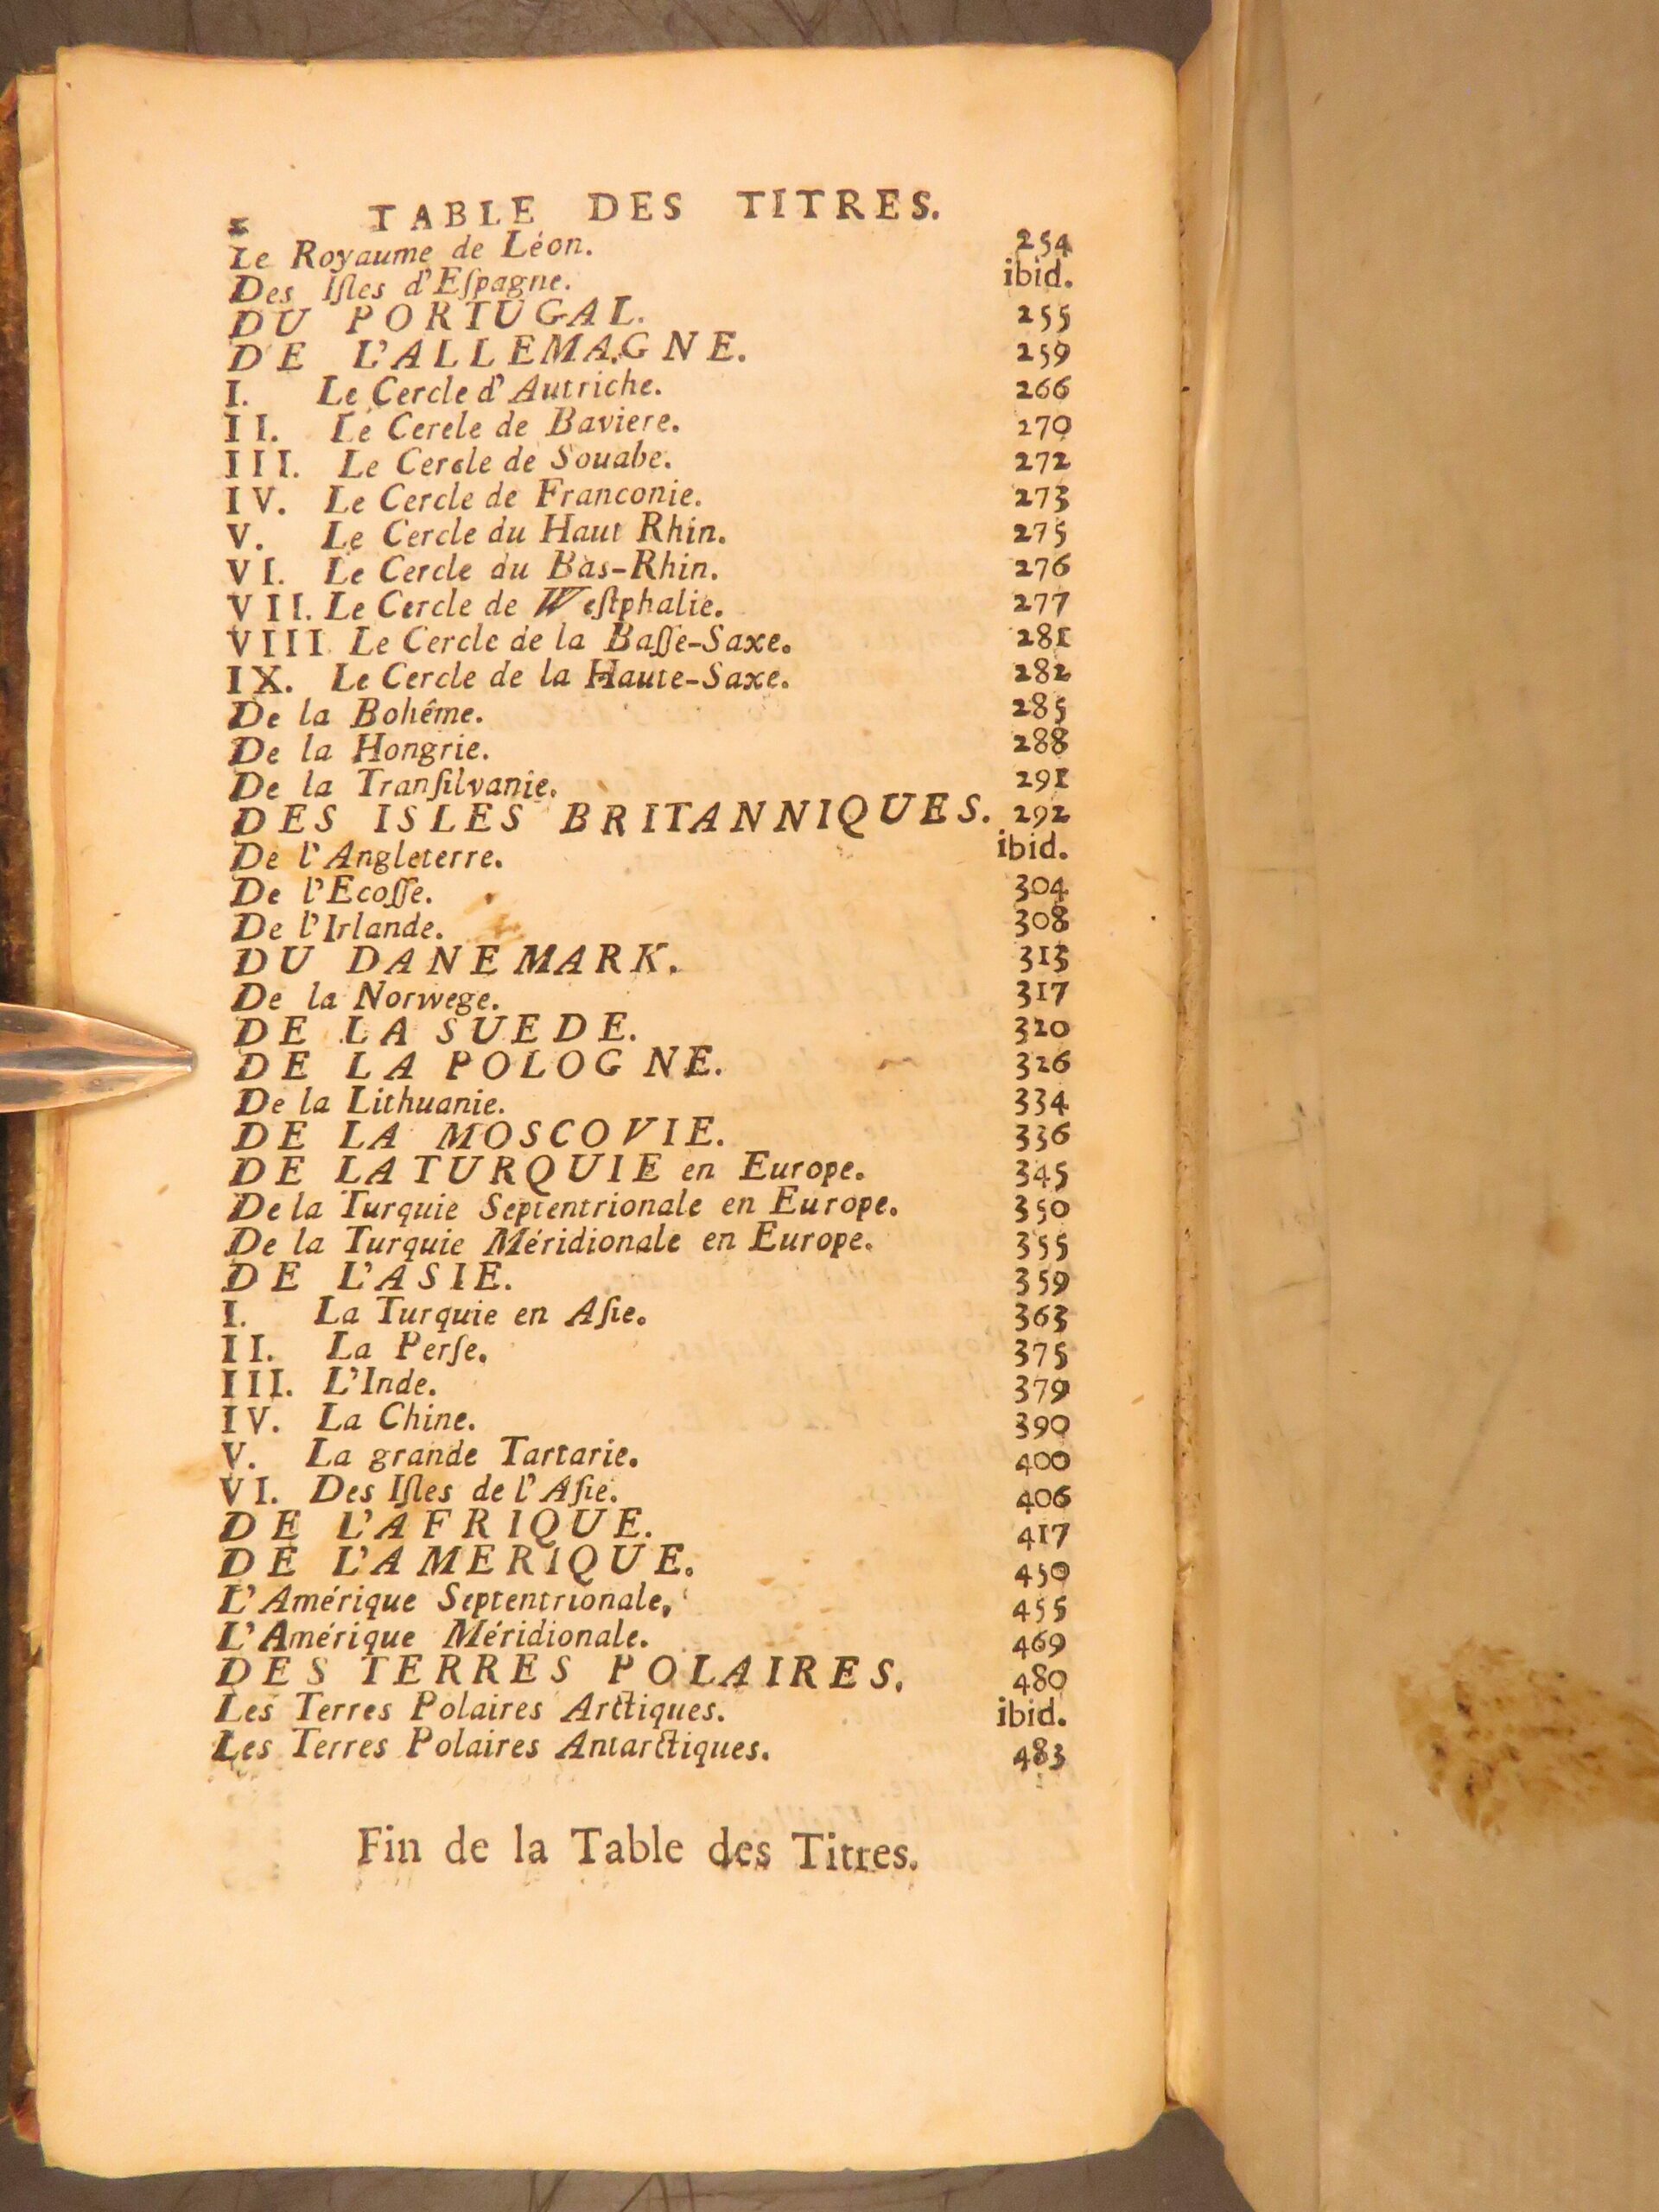 x TABLE DES TITRES.
Le Royaume de Léon. 254
Des Iſles d'Eſpagne. ibid.
DU PORTUGAL. 255
DE L'ALLEMAGNE. 259
I. Le Cercle d'Autriche. 266
II. Le Cerele de Baviere. 270
III. Le Cercle de Souabe. 272
IV. Le Cercle de Franconie. 273
V. Le Cercle du Haut Rhin. 275
VI. Le Cercle du Bas-Rhin. 276
VII. Le Cercle de Weſtphalie. 277
VIII. Le Cercle de la Baſſe-Saxe. 281
IX. Le Cercle de la Haute-Saxe. 282
De la Bohême. 285
De la Hongrie. 288
De la Tranſilvanie. 291
DES ISLES BRITANNIQUES. 292
De l'Angleterre. ibid.
De l'Ecoſſe. 304
De l'Irlande. 308
DU DANEMARK. 313
De la Norwege. 317
DE LA SUEDE. 320
DE LA POLOGNE. 326
De la Lithuanie. 334
DE LA MOSCOVIE. 336
DE LA TURQUIE en Europe. 345
De la Turquie Septentrionale en Europe. 350
De la Turquie Méridionale en Europe. 355
DE L'ASIE. 359
I. La Turquie en Aſie. 363
II. La Perſe. 375
III. L'Inde. 379
IV. La Chine. 390
V. La grande Tartarie. 400
VI. Des Iſles de l'Aſie. 406
DE L'AFRIQUE. 417
DE L'AMERIQUE. 450
L'Amérique Septentrionale. 455
L'Amérique Méridionale. 469
DES TERRES POLAIRES. 480
Les Terres Polaires Arctiques. ibid.
Les Terres Polaires Antarctiques. 483
Fin de la Table des Titres.